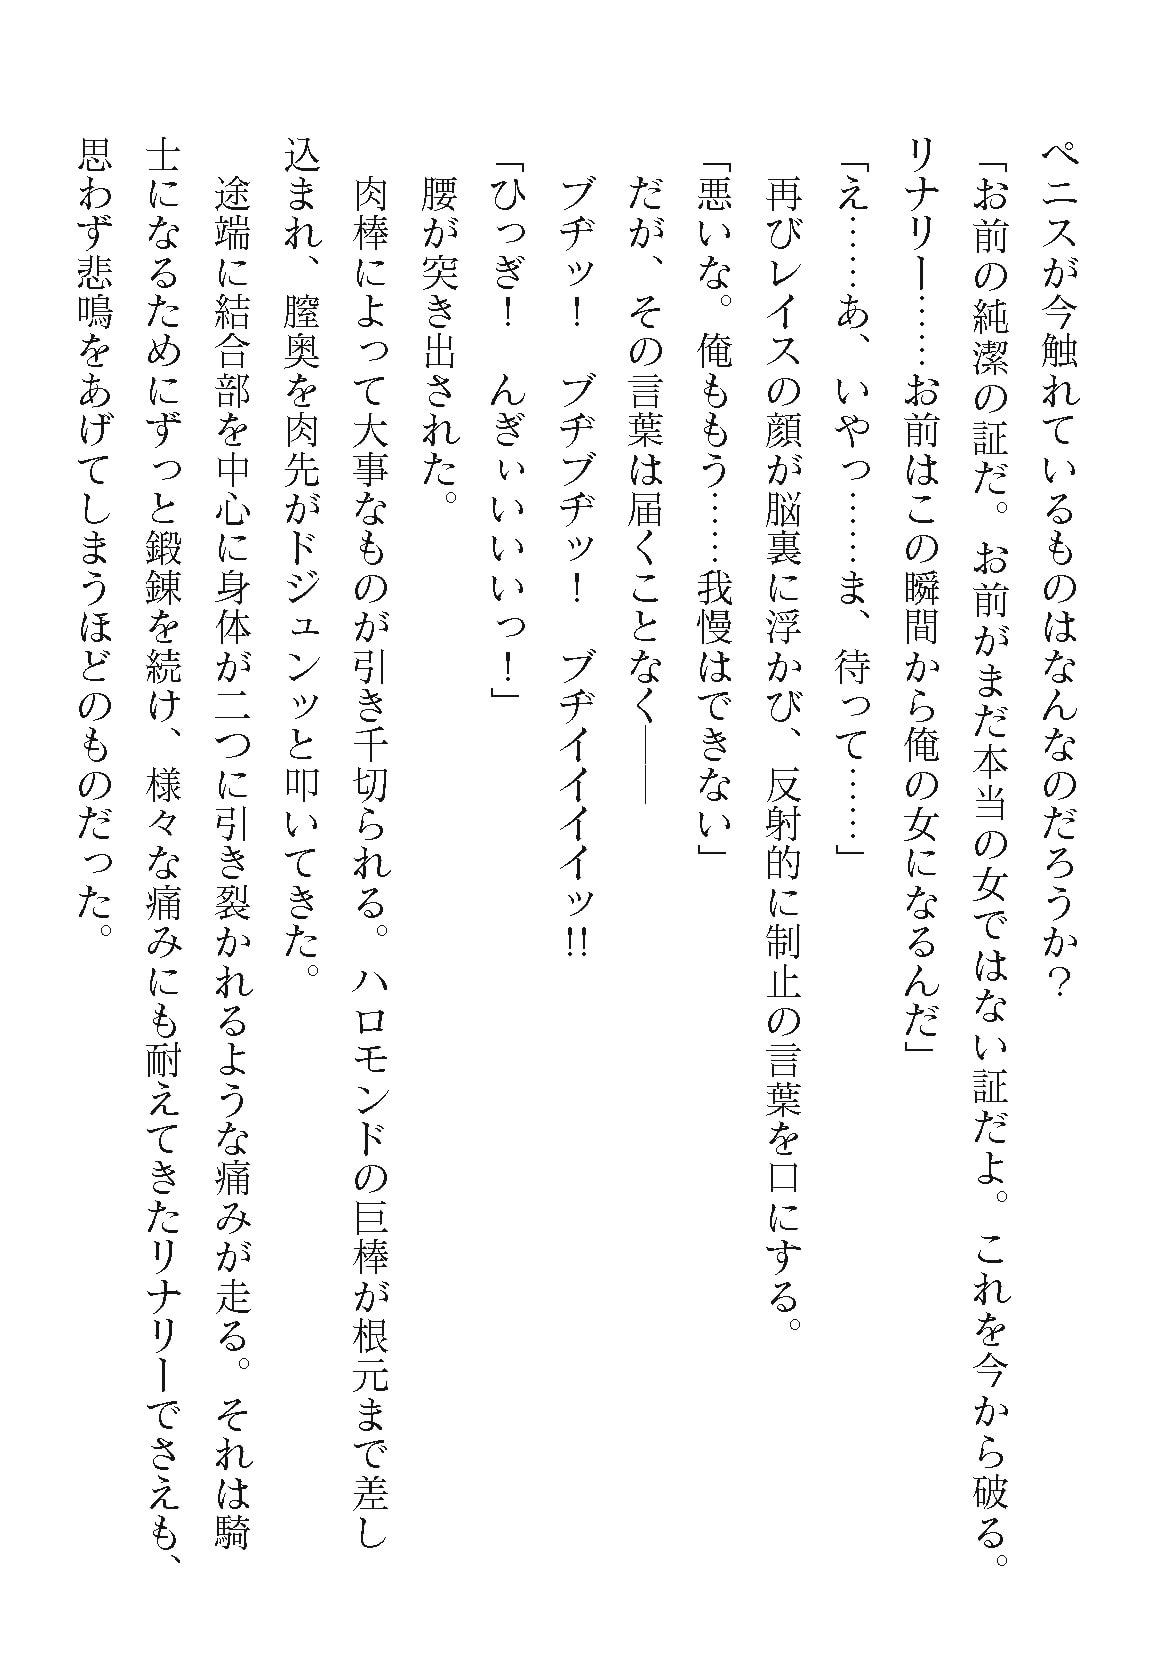 ペニスが今触れているものはなんなのだろうか？
「お前の純潔の証だ。お前がまだ本当の女ではない証だよ。これを今から破る。
リナリー……お前はこの瞬間から俺の女になるんだ」
「え……あ、いやっ……ま、待って……」
　再びレイスの顔が脳裏に浮かび、反射的に制止の言葉を口にする。
「悪いな。俺ももう……我慢はできない」
　だが、その言葉は届くことなく――
　ブヂッ！　ブヂブヂッ！　ブヂイイイイッ!!
「ひっぎ！　んぎぃいいいっ！」
　腰が突き出された。
　肉棒によって大事なものが引き千切られる。ハロモンドの巨棒が根元まで差し
込まれ、膣奥を肉先がドジュンッと叩いてきた。
　途端に結合部を中心に身体が二つに引き裂かれるような痛みが走る。それは騎
士になるためにずっと鍛錬を続け、様々な痛みにも耐えてきたリナリーでさえも、
思わず悲鳴をあげてしまうほどのものだった。